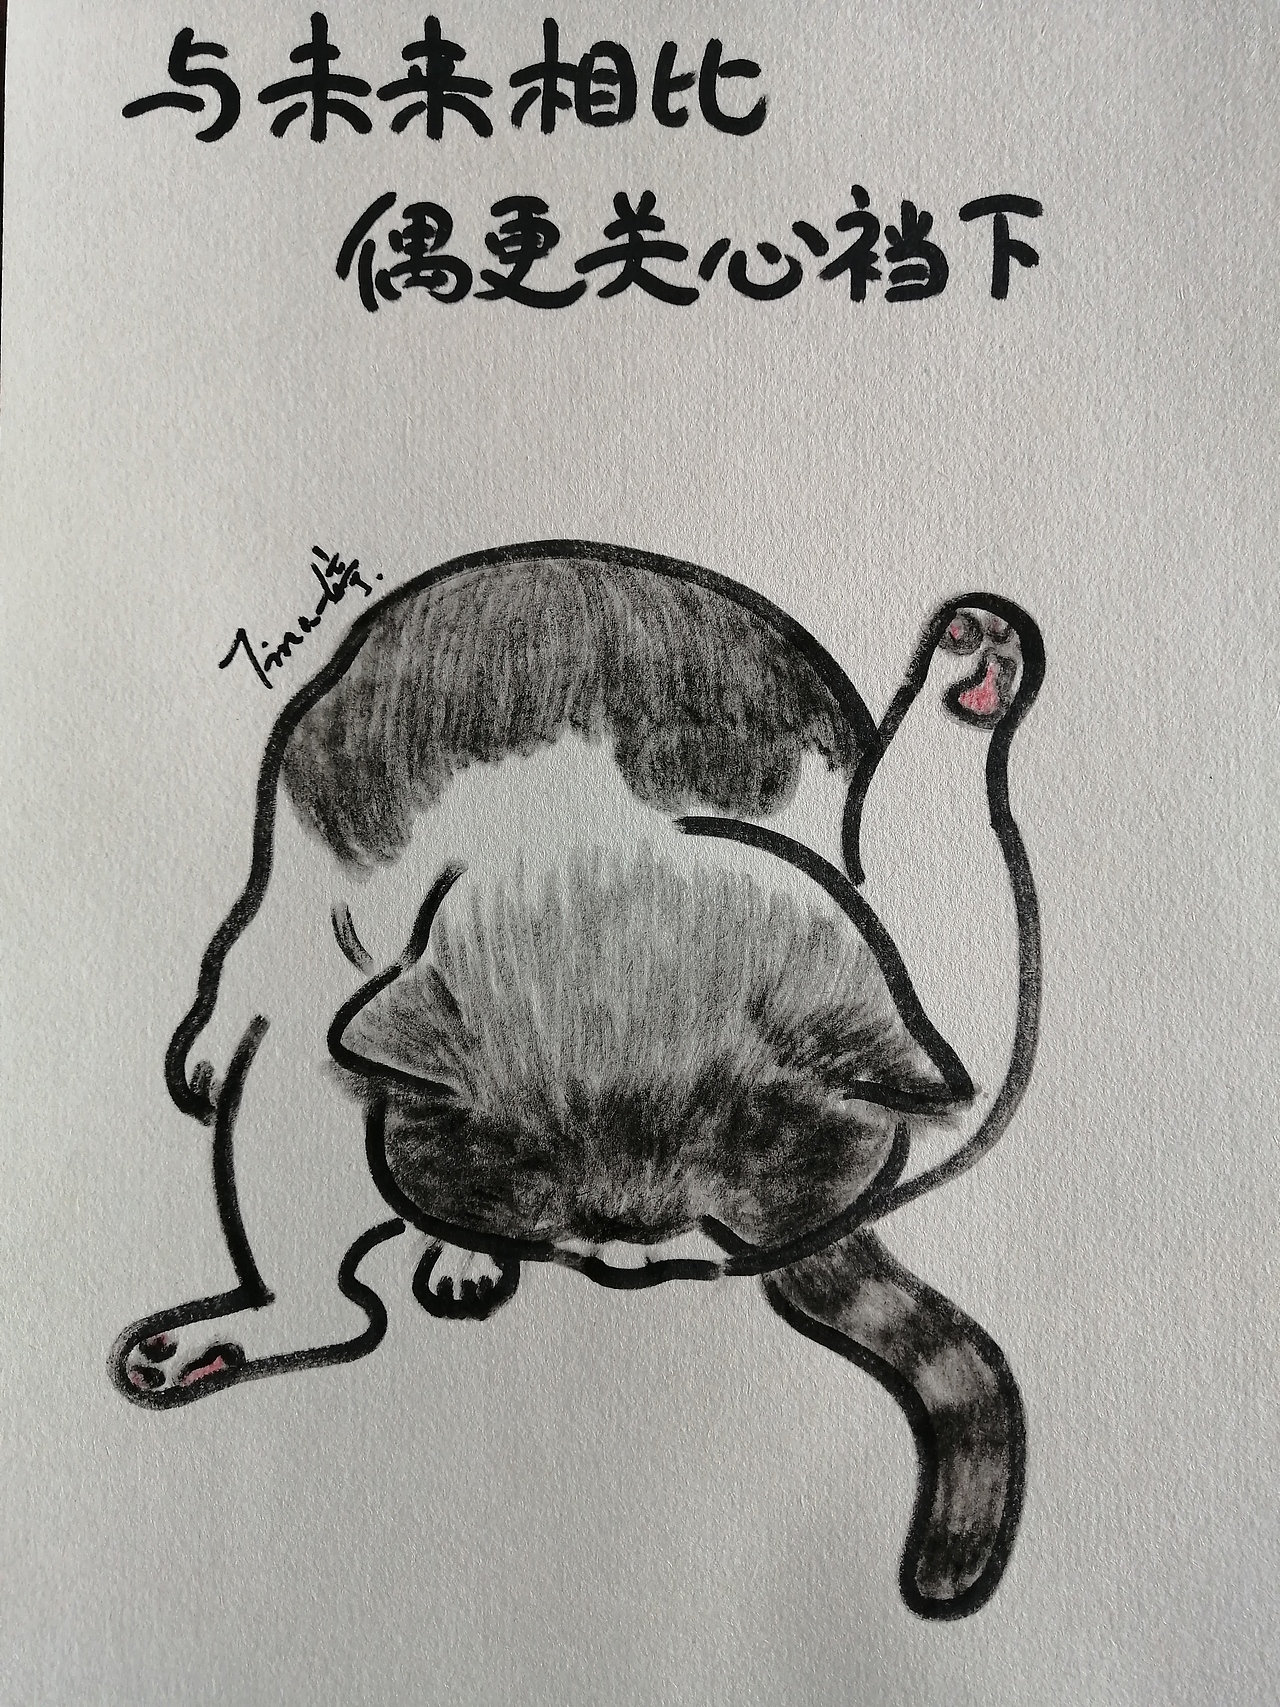 与未来相比
偶更关心裆下
Tina婷